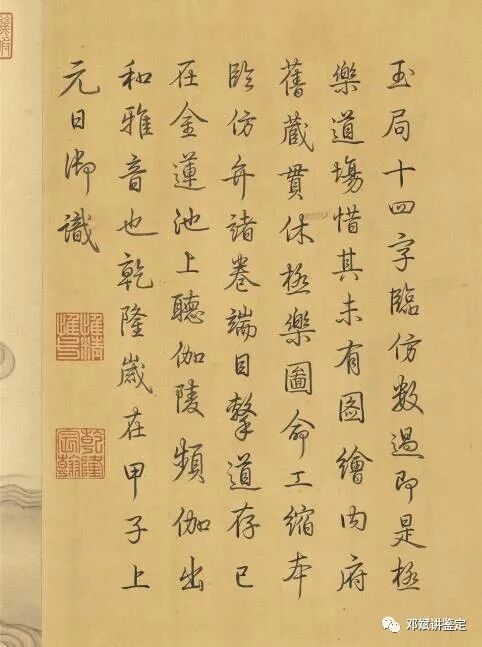 玉局十四字臨仿数過即是極
樂道場惜其未有圖繪内府
舊藏貫休極樂圖命工縮本
臨仿弁諸卷端目擊道存已
在金蓮池上聽伽陵頻伽出
和雅音也乾隆歲在甲子上
元日御識
惟精惟一
乾隆宸翰
邓斌讲鉴定